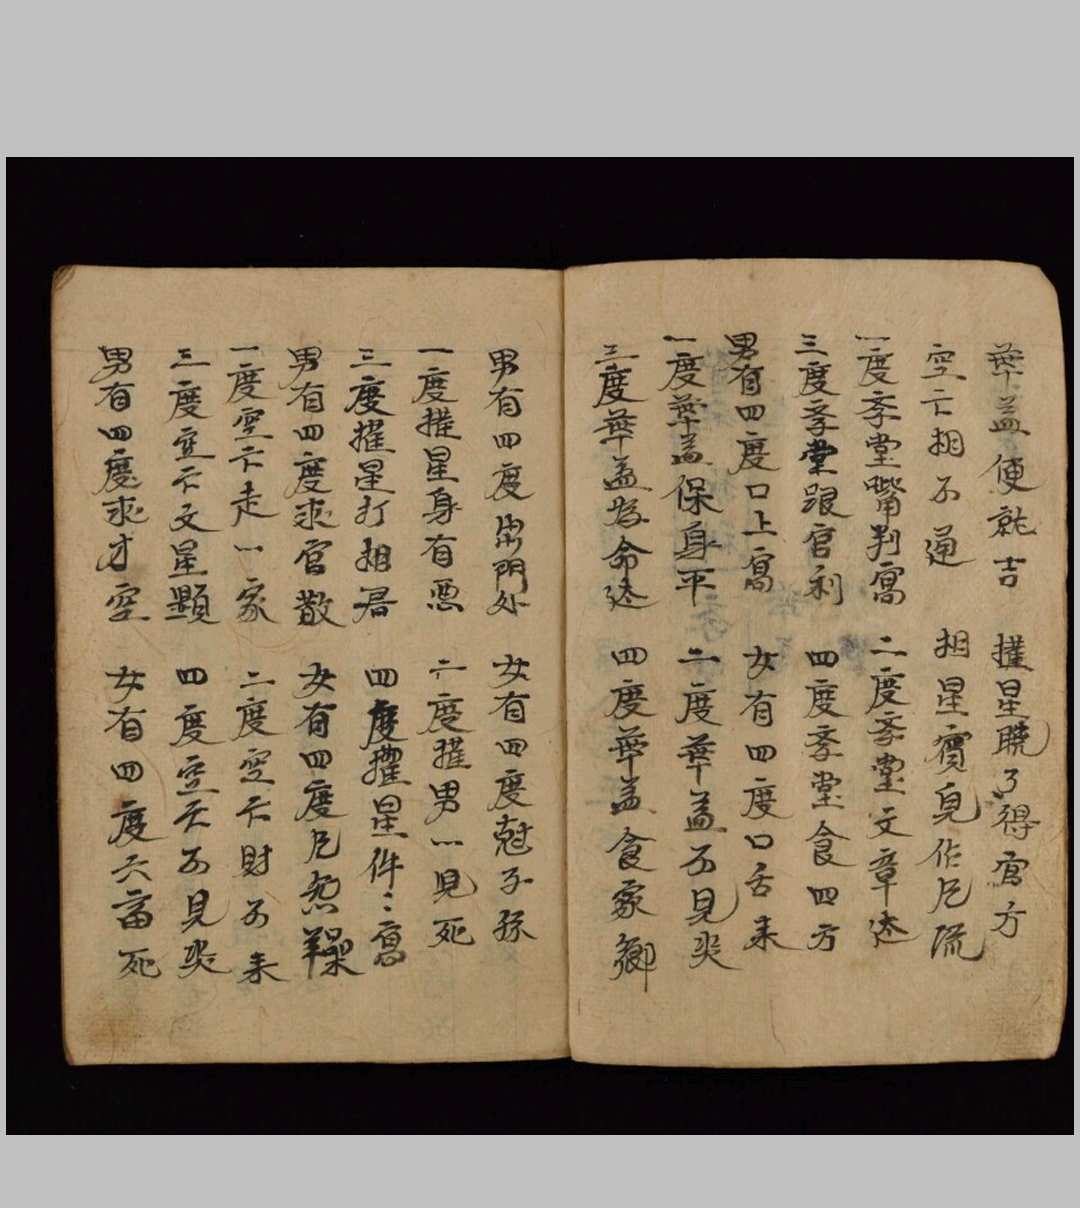 華盖便就吉 摧星曉了得官方
空亡相不逓 相星賓見作尼流
一度孝堂嘴判寫 二度孝堂文章逹
三度孝堂跟官利 四度孝堂食四方
男有四度口上寫 女有四度口舌来
一度華盖保身平 二度華盖不見災
三度華盖為命逹 四度華盖食家鄉
男有四度 門外 女有四度尅子孫
一度摧星身有惡 二度摧男一見死
三度摧星打相君 四度摧星件〻寫
男有四度求官散 女有四度尼
一度空亡走一家 二度空亡財不来
三度空亡文星顯 四度空亡不見災
男有四度求才空 女有四度六畜死